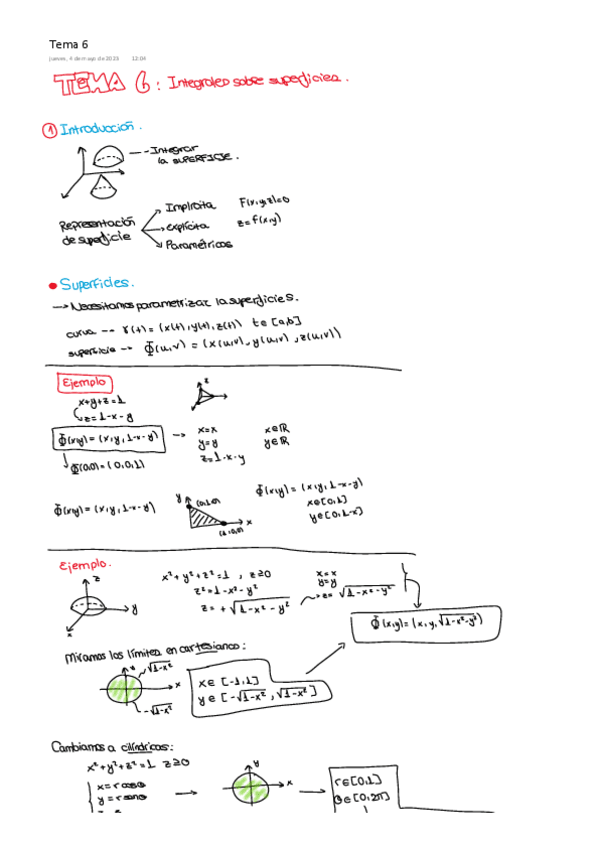 Tema 6
jueves, 4 de mayo de 2023 12:04
TEMA 6: Integrales sobre superficies.
① Introducción.
-- Integrar
la SUPERFICIE.
Representación
de superficie
Implícita F(x,y,z)=0
explícita z=f(x,y)
Paramétricas
• Superficies.
→ Necesitamos parametrizar la superficies.
curva -- γ(t) = (x(t), y(t), z(t)) t∈[a,b]
superficie -- Φ(u,v) = (x(u,v), y(u,v), z(u,v))
Ejemplo
x+y+z=1
z=1-x-y
z
Φ(x,y) = (x,y,1-x-y) →
x=x x∈ℝ
y=y y∈ℝ
z=1-x-y
Φ(0,0) = (0,0,1)
Φ(x,y) = (x,y,1-x-y)
y
(0,1,0)
x
(1,0,0)
Φ(x,y) = (x,y,1-x-y)
x∈[0,1]
y∈[0,1-x]
Ejemplo.
z
y
x
x²+y²+z²=1, z≥0
z²=1-x²-y²
z=+√1-x²-y²
x=x
y=y
z=√1-x²-y²
Φ(x,y) = (x,y,√1-x²-y²)
Miramos los límites en cartesianas:
y
√1-x²
x
-√1-x²
x∈[-1,1]
y∈[-√1-x², √1-x²]
Cambiamos a cilíndricas:
x²+y²+z²=1 z≥0
x=rcosθ
y=rsenθ
y
x
r∈[0,1]
θ∈[0,2π]